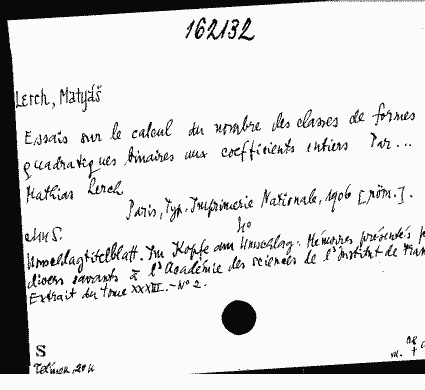 162132
Lerch, Matyáš
Essais sur le calcul du nombre des classes de formes
quadratiques binaires aux coefficients entiers Par...
Mathias Lerch
Paris, Typ. Imprimerie Nationale, 1906 [röm.].
4°
Umschlagtitelblatt. Im Kopfe am Umschlag. Mémoires présentés p
divers savants à l'Académie des sciences de l'institut de Fran
Extrait du tome XXXIII. - N° 2.
S